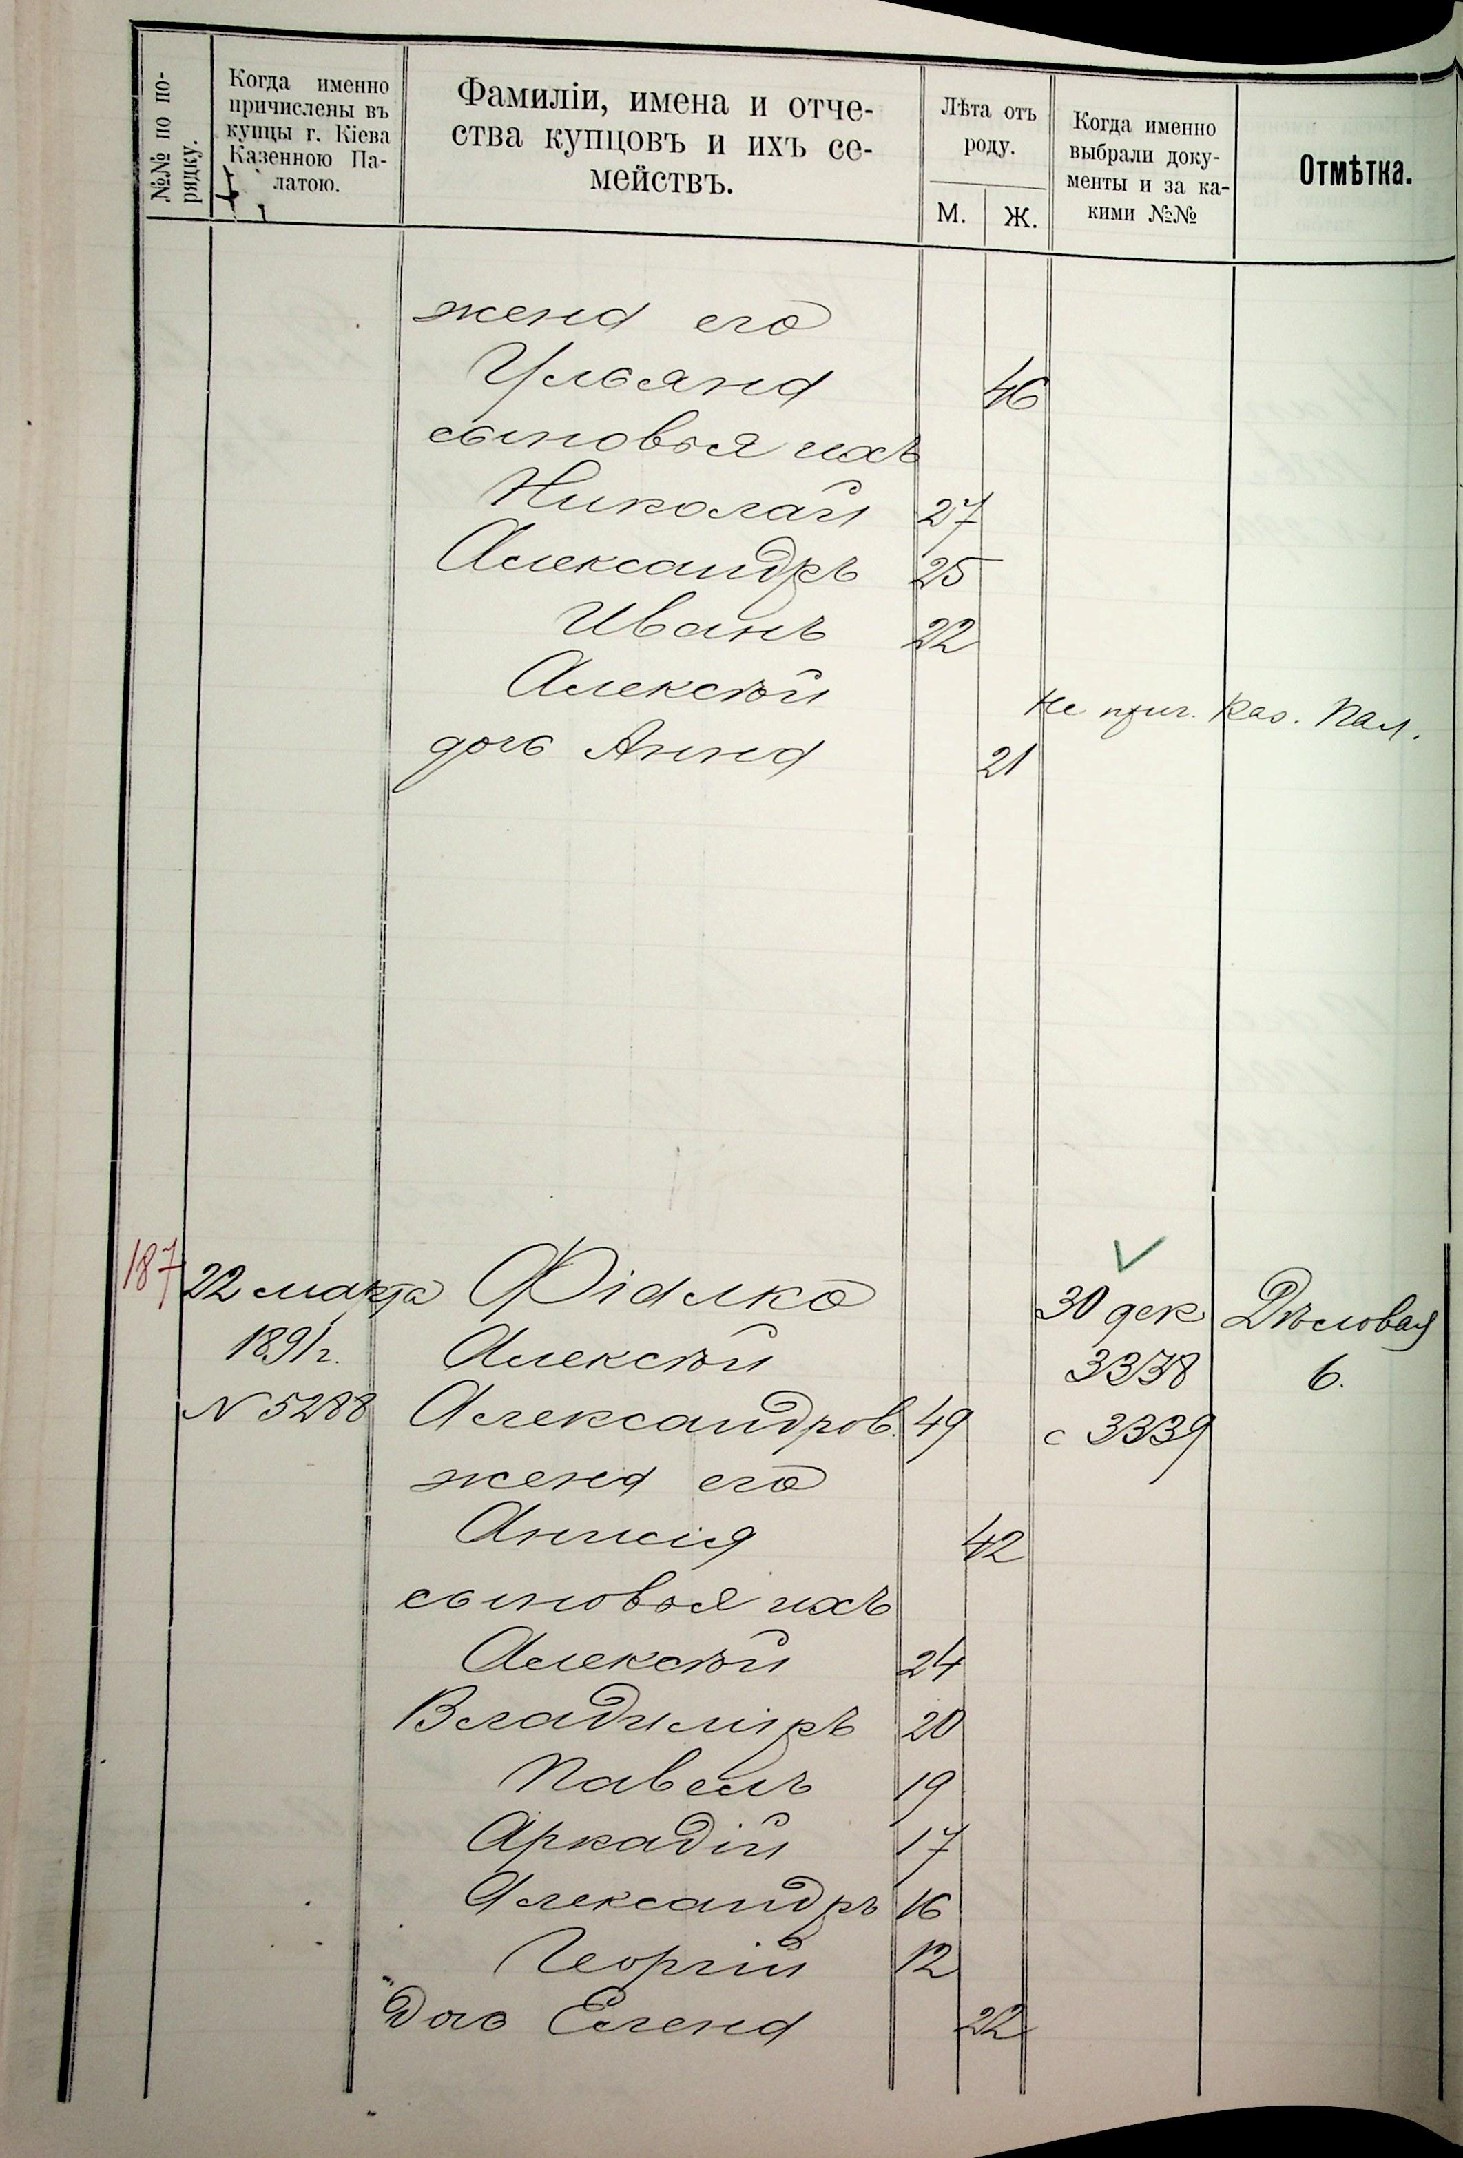 №№ по по-
рядку.
Когда именно
причислены въ
купцы г. Кіева
Казенною Па-
латою.
Фамиліи, имена и отче-
ства купцовъ и ихъ се-
мействъ.
Лѣта отъ
роду.
М. Ж.
Когда именно
выбрали доку-
менты и за ка-
кими №№
Отмѣтка.
жена его
Ульяна 46
сыновья ихъ
Николай 27
Александръ 25
Иванъ 22
Алексѣй Не прич. Каз. Пал.
дочь Анна 21
187 22 марта Фіалко 30 дек Дѣловая
1891 г. Алексѣй 3338 6.
N 5288 Александров. 49 с 3339
жена его
Анисія 42
сыновья ихъ
Алексѣй 24
Владиміръ 20
Павелъ 19
Аркадій 17
Александръ 16
Георгій 12
дочь Елена 22